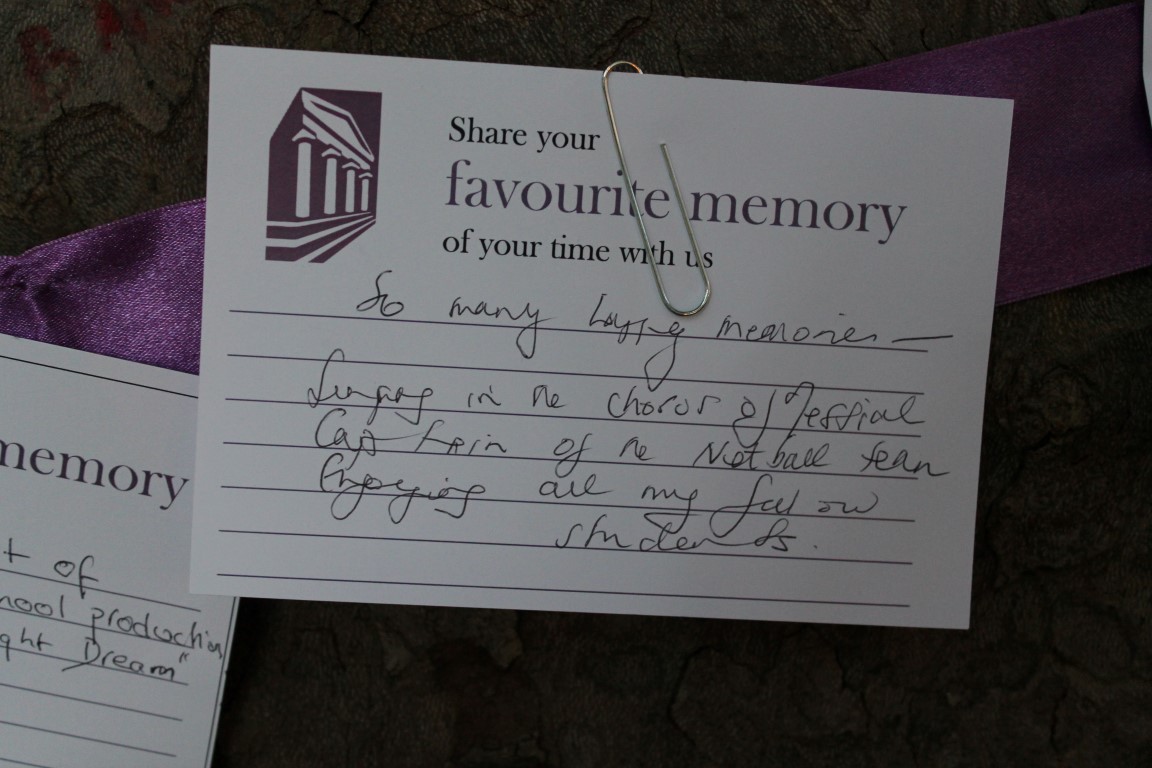 Share your
favourite memory
of your time with us
So many happy memories —
Singing in the chorus of Messiah
Captain of the Netball team
Enjoying all my fallow
students.
memory
t of
hool production
ght Dream"